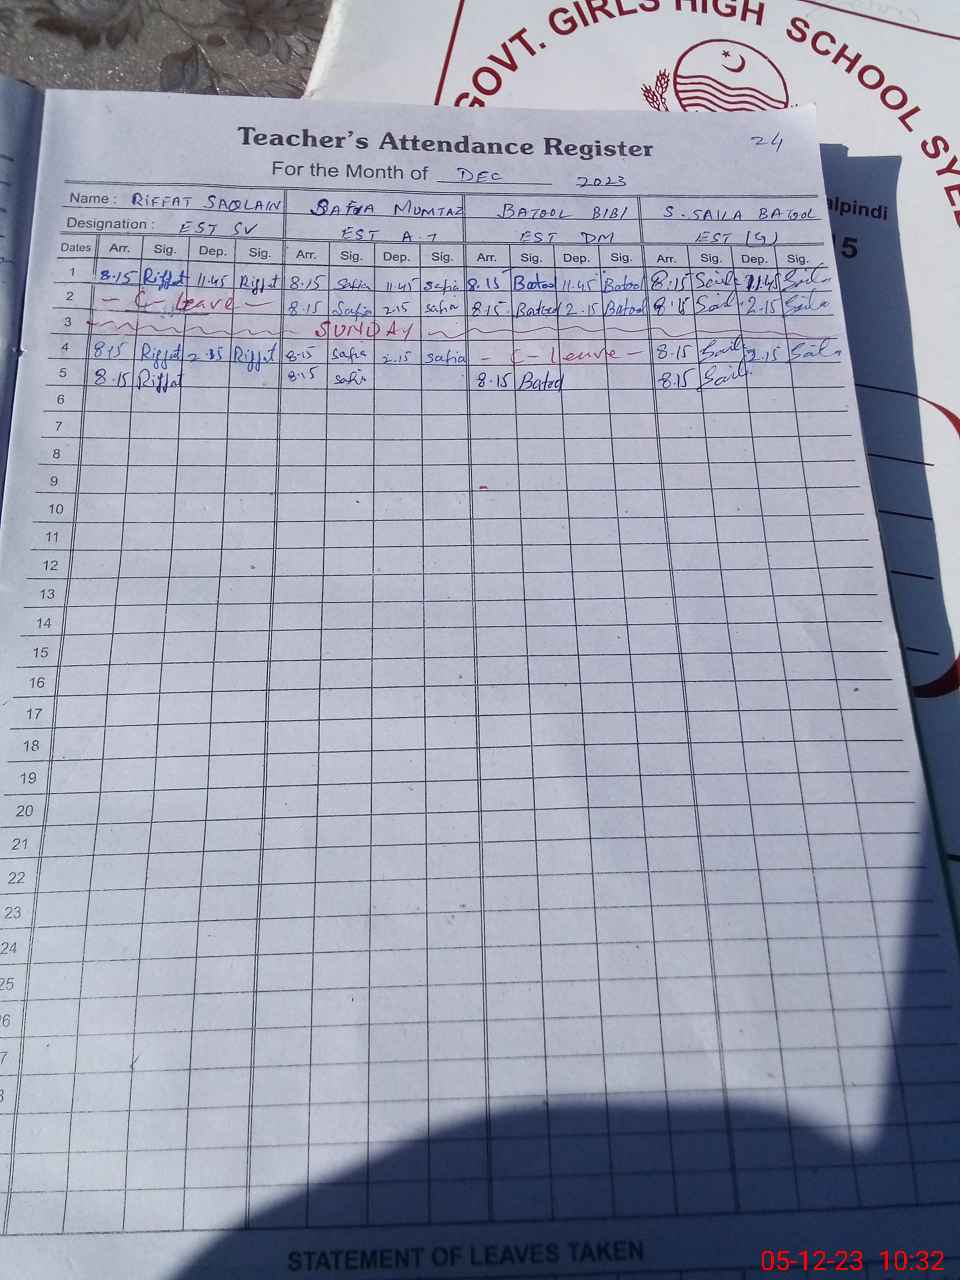 GOVT. GIRLS HIGH SCHOOL SYED
alpindi
5
24
Teacher's Attendance Register
For the Month of DEC 2023
Name : RIFFAT SAQLAIN SAFIA MUMTAZ BATOOL BIBI S. SAILA BATOOL
Designation : EST SV EST A.T EST DM EST (G)
Dates Arr. Sig. Dep. Sig. Arr. Sig. Dep. Sig. Arr. Sig. Dep. Sig. Arr. Sig. Dep. Sig.
1 8.15 Riffat 11.45 Riffat 8.15 Safia 11.45 Safia 8.15 Batool 11.45 Batool 8.15 Saila 11.45 Saila
2 - C - Leave - 8.15 Safia 2.15 safia 8.15 Batool 2.15 Batool 8.15 Saila 2.15 Saila
3 SUNDAY
4 8.15 Riffat 2.15 Riffat 8.15 Safia 2.15 safia - C - Leave - 8.15 Saila 2.15 Saila
5 8.15 Riffat 8.15 safia 8.15 Batool 8.15 Saila
6
7
8
9
10
11
12
13
14
15
16
17
18
19
20
21
22
23
24
25
6
7
8
STATEMENT OF LEAVES TAKEN
05-12-23 10:32